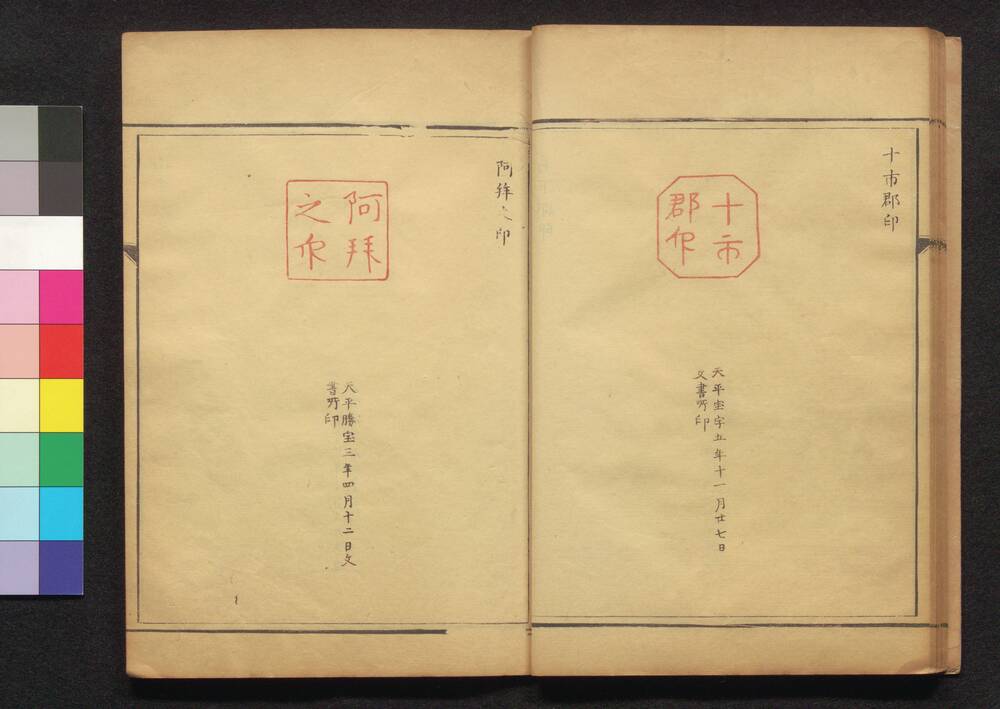 十市郡印
十市
郡印
天平宝字五年十一月廿七日
文書所印
阿拝之印
阿拝
之印
天平勝宝三年四月十二日文
書所印